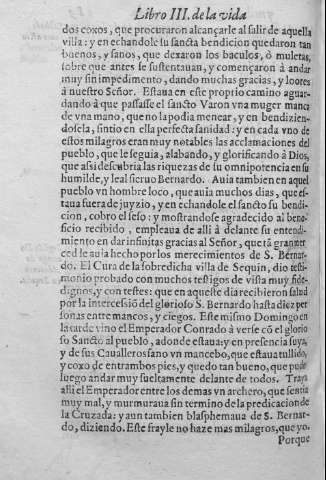 Libro III. de la vida
dos coxos, que procuraron alcançarle al salir de aquella
villa: y en echandole su sancta bendicion quedaron tan
buenos, y sanos, que dexaron los baculos, ò muletas,
sobre que antes se sustentauan, y començaron à andar
muy sin impedimento, dando muchas gracias, y loores
à nuestro Señor. Estaua en este proprio camino aguar-
dando à que passasse el sancto Varon vna muger manca
de vna mano, que no la podia menear, y en bendizien-
dosela, sintio en ella perfecta sanidad: y en cada vno de
estos milagros eran muy notables las acclamaciones del
pueblo, que le seguia, alabando, y glorificando à Dios,
que assi descubria las riquezas de su omnipotencia en su
humilde, y leal sieruo Bernardo. Auia tambien en aquel
pueblo vn hombre loco, que auia muchos dias, que es-
taua fuera de juyzio, y en echandole el sancto su bendi-
cion, cobro el seso: y mostrandose agradecido al bene-
ficio recibido, empleaua de alli à delante su entendi-
miento en dar infinitas gracias al Señor, que tã gran mer
ced le auia hecho por los merecimientos de S. Bernar-
do. El Cura de la sobredicha villa de Sequin, dio testi-
monio probado con muchos testigos de vista muy fide-
dignos, y contestes: que en aqueste dia recibieron salud
por la intercessiõ del glorioso S. Bernardo hasta diez per
sonas entre mancos, y ciegos. Este mismo Domingo en
la tarde vino el Emperador Conrado à verse cõ el glorio
so Sancto al pueblo, adonde estaua: y en presencia suya,
y de sus Caualleros sano vn mancebo, que estaua tullido,
y coxo de entrambos pies, y quedo tan bueno, que pudo
luego andar muy sueltamente delante de todos. Traya
alli el Emperador entre los demas vn archero, que sentia
muy mal, y murmuraua sin termino de la predicacion de
la Cruzada: y aun tambien blasphemaua de S. Bernar-
do, diziendo. Este frayle no haze mas milagros, que yo.
Porque